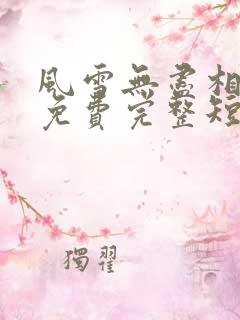 風雪無盡相
免費完整短
獨翟